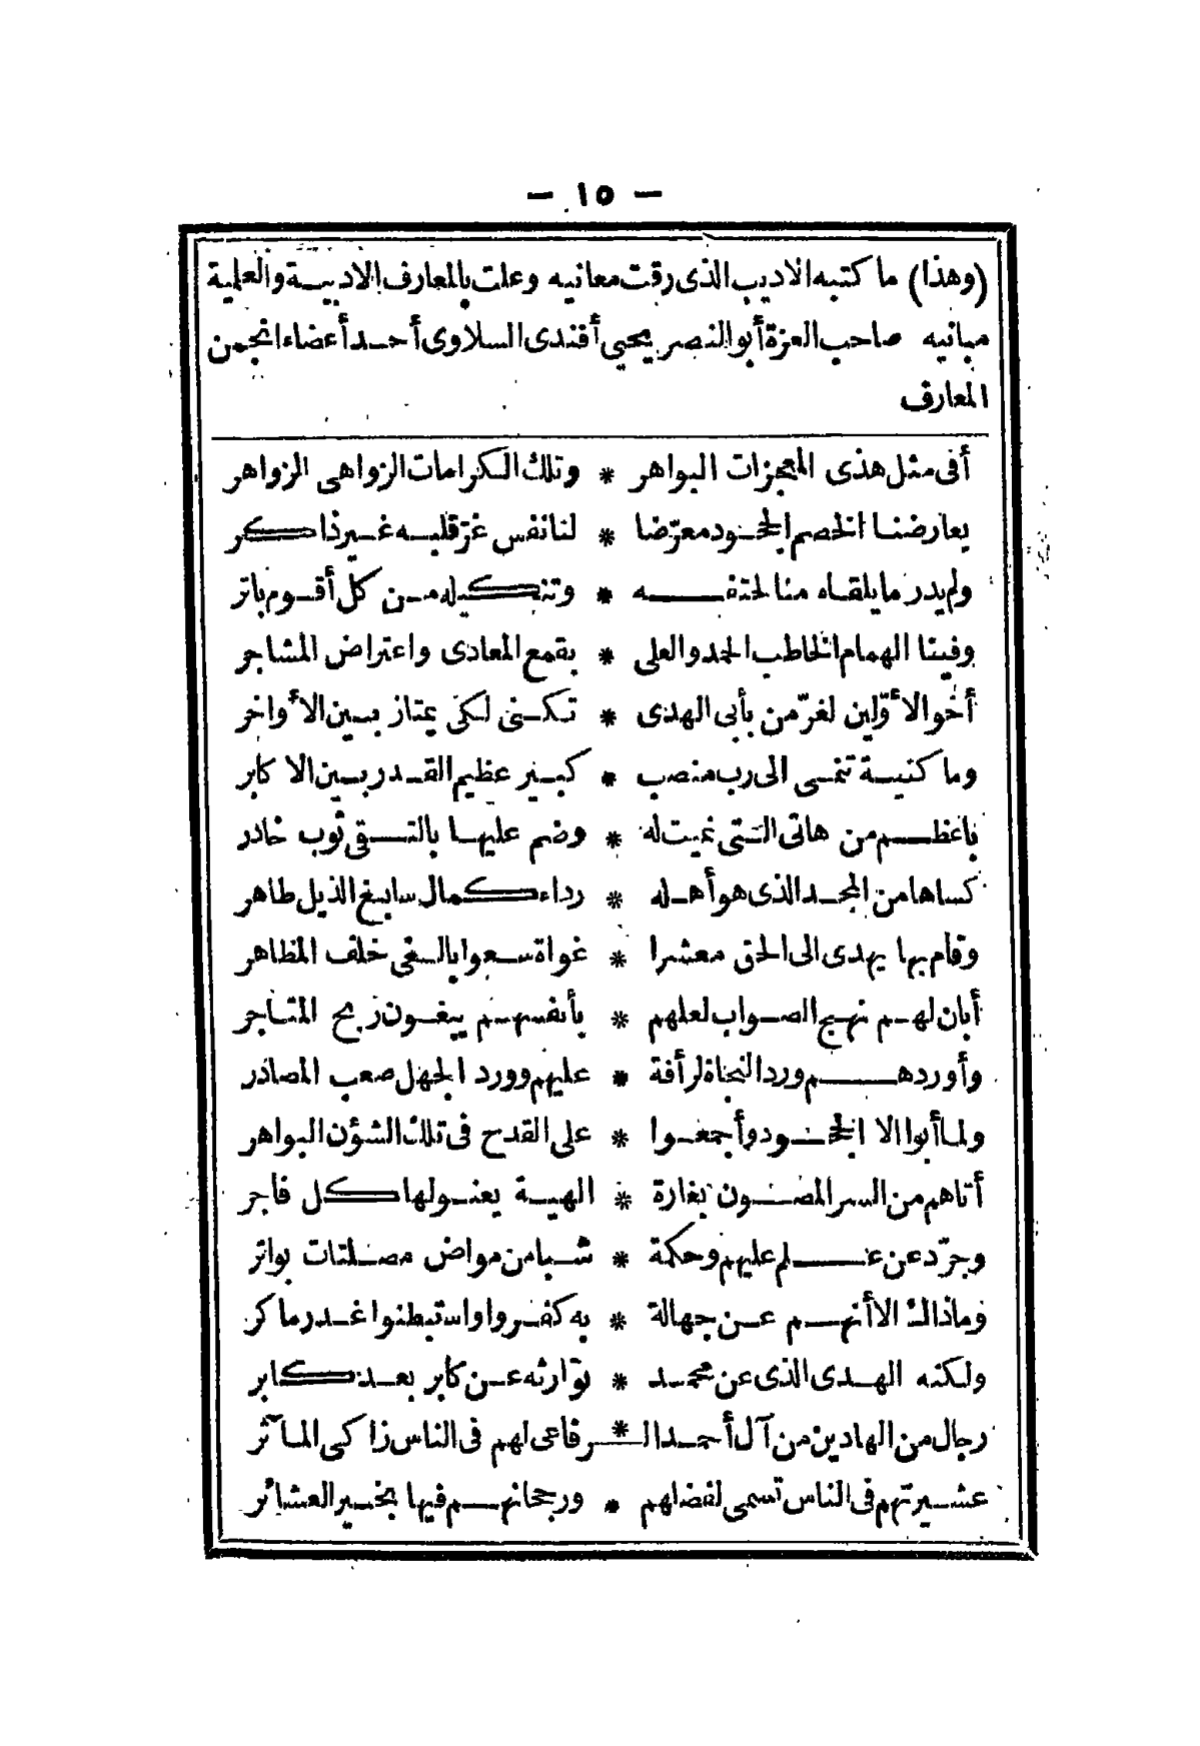 — ١٥ —
(وهذا) ما كتبه الاديب الذى رقت معانيه وعلت بالمعارف الادبية والعلية
مبانيه صاحب العزة أبو النصر يحيى أفندى السلاوى أحد أعضاء انجمن
المعارف
أفى مثل هذى المعجزات البواهر * وتلك الكرامات الزواهى الزواهر
يعارضنا الخصم الجحود معرّضا * لنا نفس غرّ قلبه غير ذاكر
ولم يدر ما يلقاه منا لحتفه * وتنكيله من كل أقوم باتر
وفينا الهمام الخاطب المجد والعلى * بقمع المعادى واعتراض المشاجر
أخو الأوّلين لغرّ من بأبى الهدى * تكنى لكى يمتاز بين الأواخر
وما كنية تنمى الى رب منصب * كبير عظيم القدر بين الاكابر
باعظم من هاتى التى نميت له * وضم عليها بالتقى ثوب خادر
كساها من المجد الذى هو أهله * رداء كمال سابغ الذيل طاهر
وقام بها يهدى الى الحق معشرا * غواة سعوا بالغى خلف المظاهر
أبان لهم نهج الصواب لعلهم * بأنفسهم يبغون ربح المتاجر
وأوردهم ورد النجاة لرأفة * عليهم وورد الجهل صعب المصادر
ولما أبوا الا الجحود وأجمعوا * على القدح فى تلك الشؤن البواهر
أتاهم من السر المصون بغارة * الهية يعنو لها كل فاجر
وجرّد عن علم عليهم وحكمة * شبا من مواض مصلتات بواتر
وما ذاك الا أنهم عن جهالة * به كفروا واستبطنوا غدر ماكر
ولكنه الهدى الذى عن محمد * توارثه عن كابر بعد كابر
رجال من الهادين من آل أحمد الـ * ـرفاعى لهم فى الناس زاكى المآثر
عشيرتهم فى الناس تسمى لفضلهم * ورجحانهم فيها بخير العشائر